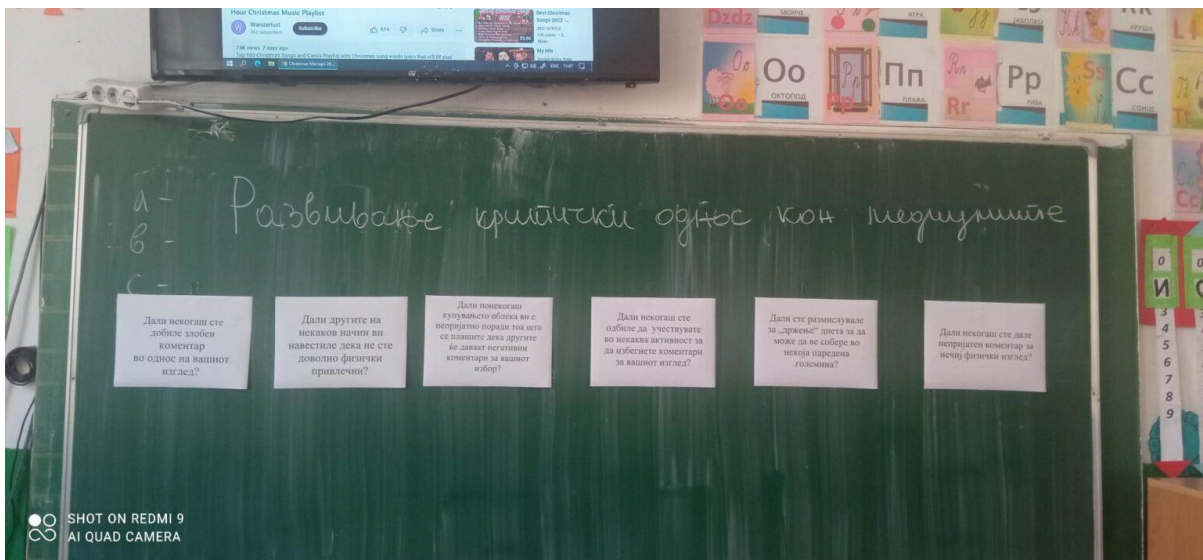 Hour Christmas Music Playlist
Wanderlust
Subscribe
574
Share
74K views 7 days ago
Top 100 Christmas Songs and Carols Playlist with Christmas song words lyrics that will fill your
Best Christmas
Songs 2023 -...
My Mix
ENG 11:47
Dzdz
ЅВОНЧЕ
ИГРА
КРУША
Оо
ОКТОПОД
Oo
Пп
ПЛАЖА
Pp
Рр
РИБА
Rr
Ss
Сс
СОНЦЕ
Cc
а -
в -
с -
Развивање критички однос кон медиумите
Дали некогаш сте
добиле злобен
коментар
во однос на вашиот
изглед?
Дали другите на
некаков начин ви
навестиле дека не сте
доволно физички
привлечни?
Дали понекогаш
купувањето облека ви е
непријатно поради тоа што
се плашите дека другите
ќе даваат негативни
коментари за вашиот
избор?
Дали некогаш сте
одбиле да учествувате
во некаква активност за
да избегнете коментари
за вашиот изглед?
Дали сте размислувале
за „држење“ диета за да
може да ве собере во
некоја одредена
големина?
Дали некогаш сте дале
непријатен коментар за
нечиј физички изглед?
0
И
3
4
5
6
7
8
9
SHOT ON REDMI 9
AI QUAD CAMERA